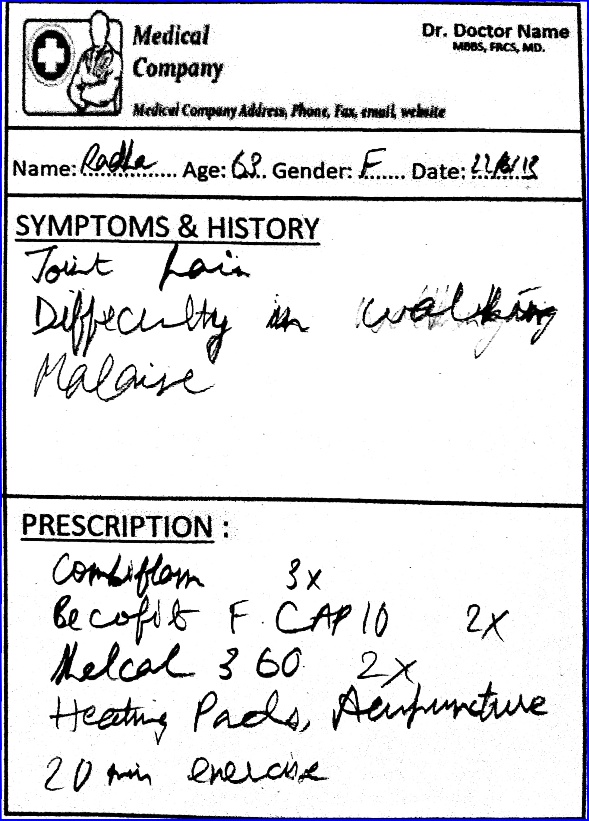 Medical
Company
Dr. Doctor Name
MBBS, FRCS, MD.
Medical Company Address, Phone, Fax, email, website
Name: Radha Age: 63 Gender: F Date:
SYMPTOMS & HISTORY
Joint Pain
Diffeculty in walking
Malaise
PRESCRIPTION :
Combiflam 3x
Becofit F CAP 10 2x
Melcal 360 2x
Heating Pads, Acupuncture
20 min exercise